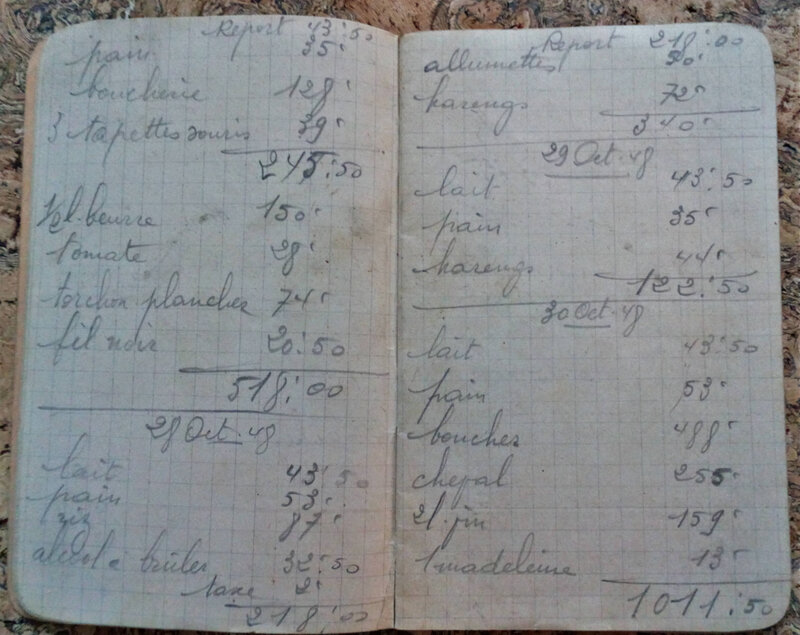 Report 43:50
pain 35'
boucherie 128'
3 tapettes souris 39'
245:50
½l. beurre 150'
tomate 28'
torchon plancher 74'
fil noir 20:50
518:00
28 Oct. 48
lait 43:50
pain 53'
riz 87'
alcool à brûler 32:50
taxe 2'
218:00
Report 218:00
allumettes 50'
harengs 72'
340'
29 Oct. 48
lait 43:50
pain 35'
harengs 44'
122:50
30 Oct. 48
lait 43:50
pain 53'
boucher 488'
cheval 255'
2l. vin 159'
1 madeleine 13'
1011:50